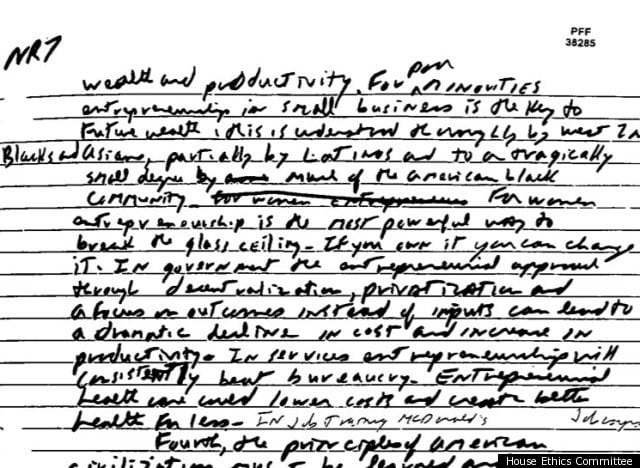 PFF
38285
NR7
wealth and productivity. For poor MINORITIES
entrepreneurship in small business is the key to
future wealth. this is understood thoroughly by west IN
Blacks and Asians, partially by Latinos and to a tragically
small degree by much of the american black
community. for women entrepreneurs For women
entrepreneurship is the most powerful way to
break the glass ceiling. If you own it you can change
it. In government the entrepreneurial approach
through decentralization, privatization and
a focus on outcomes instead of inputs can lead to
a dramatic decline in cost and increase in
productivity. In services entrepreneurship will
consistently beat bureaucracy. Entrepreneurial
health care could lower costs and create better
health for less. IN Job Training McDonald's
Fourth, the principles of american
civilization must be learned and
House Ethics Committee